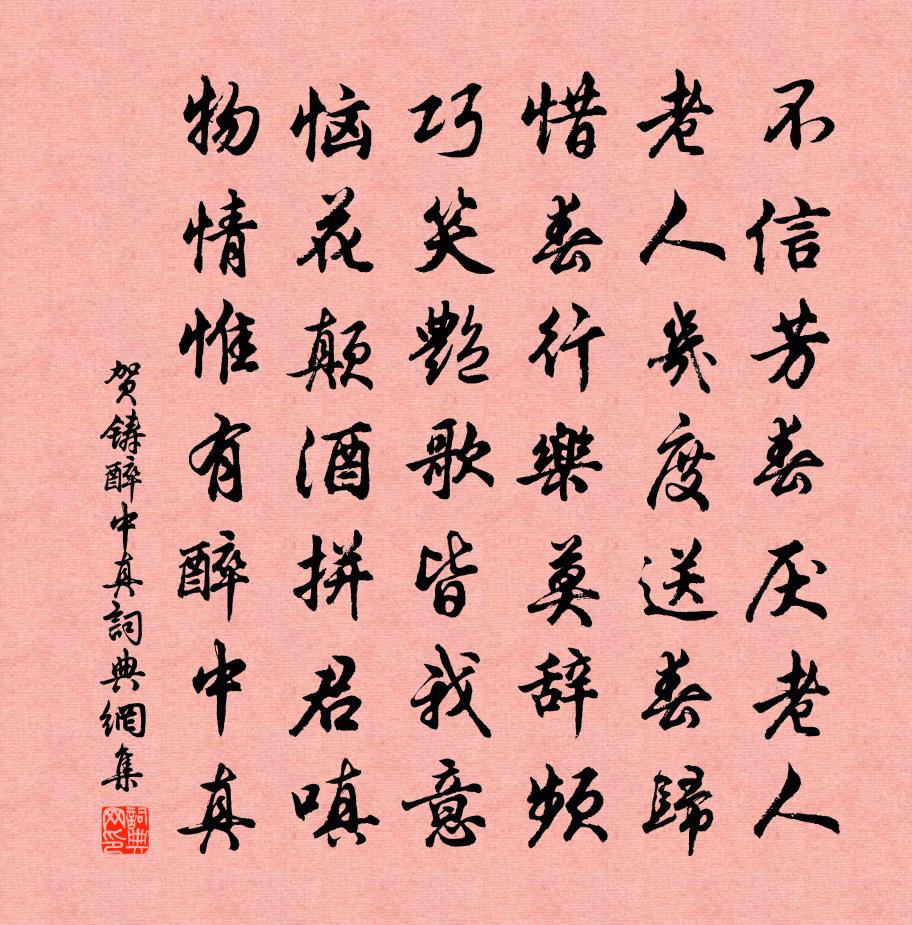 不信芳春厌老人
老人幾度送春歸
惜春行樂莫辞频
巧笑艷歌皆我意
恼花颠酒拼君嗔
物情惟有醉中真
贺铸醉中真詞典網集
詞典网印